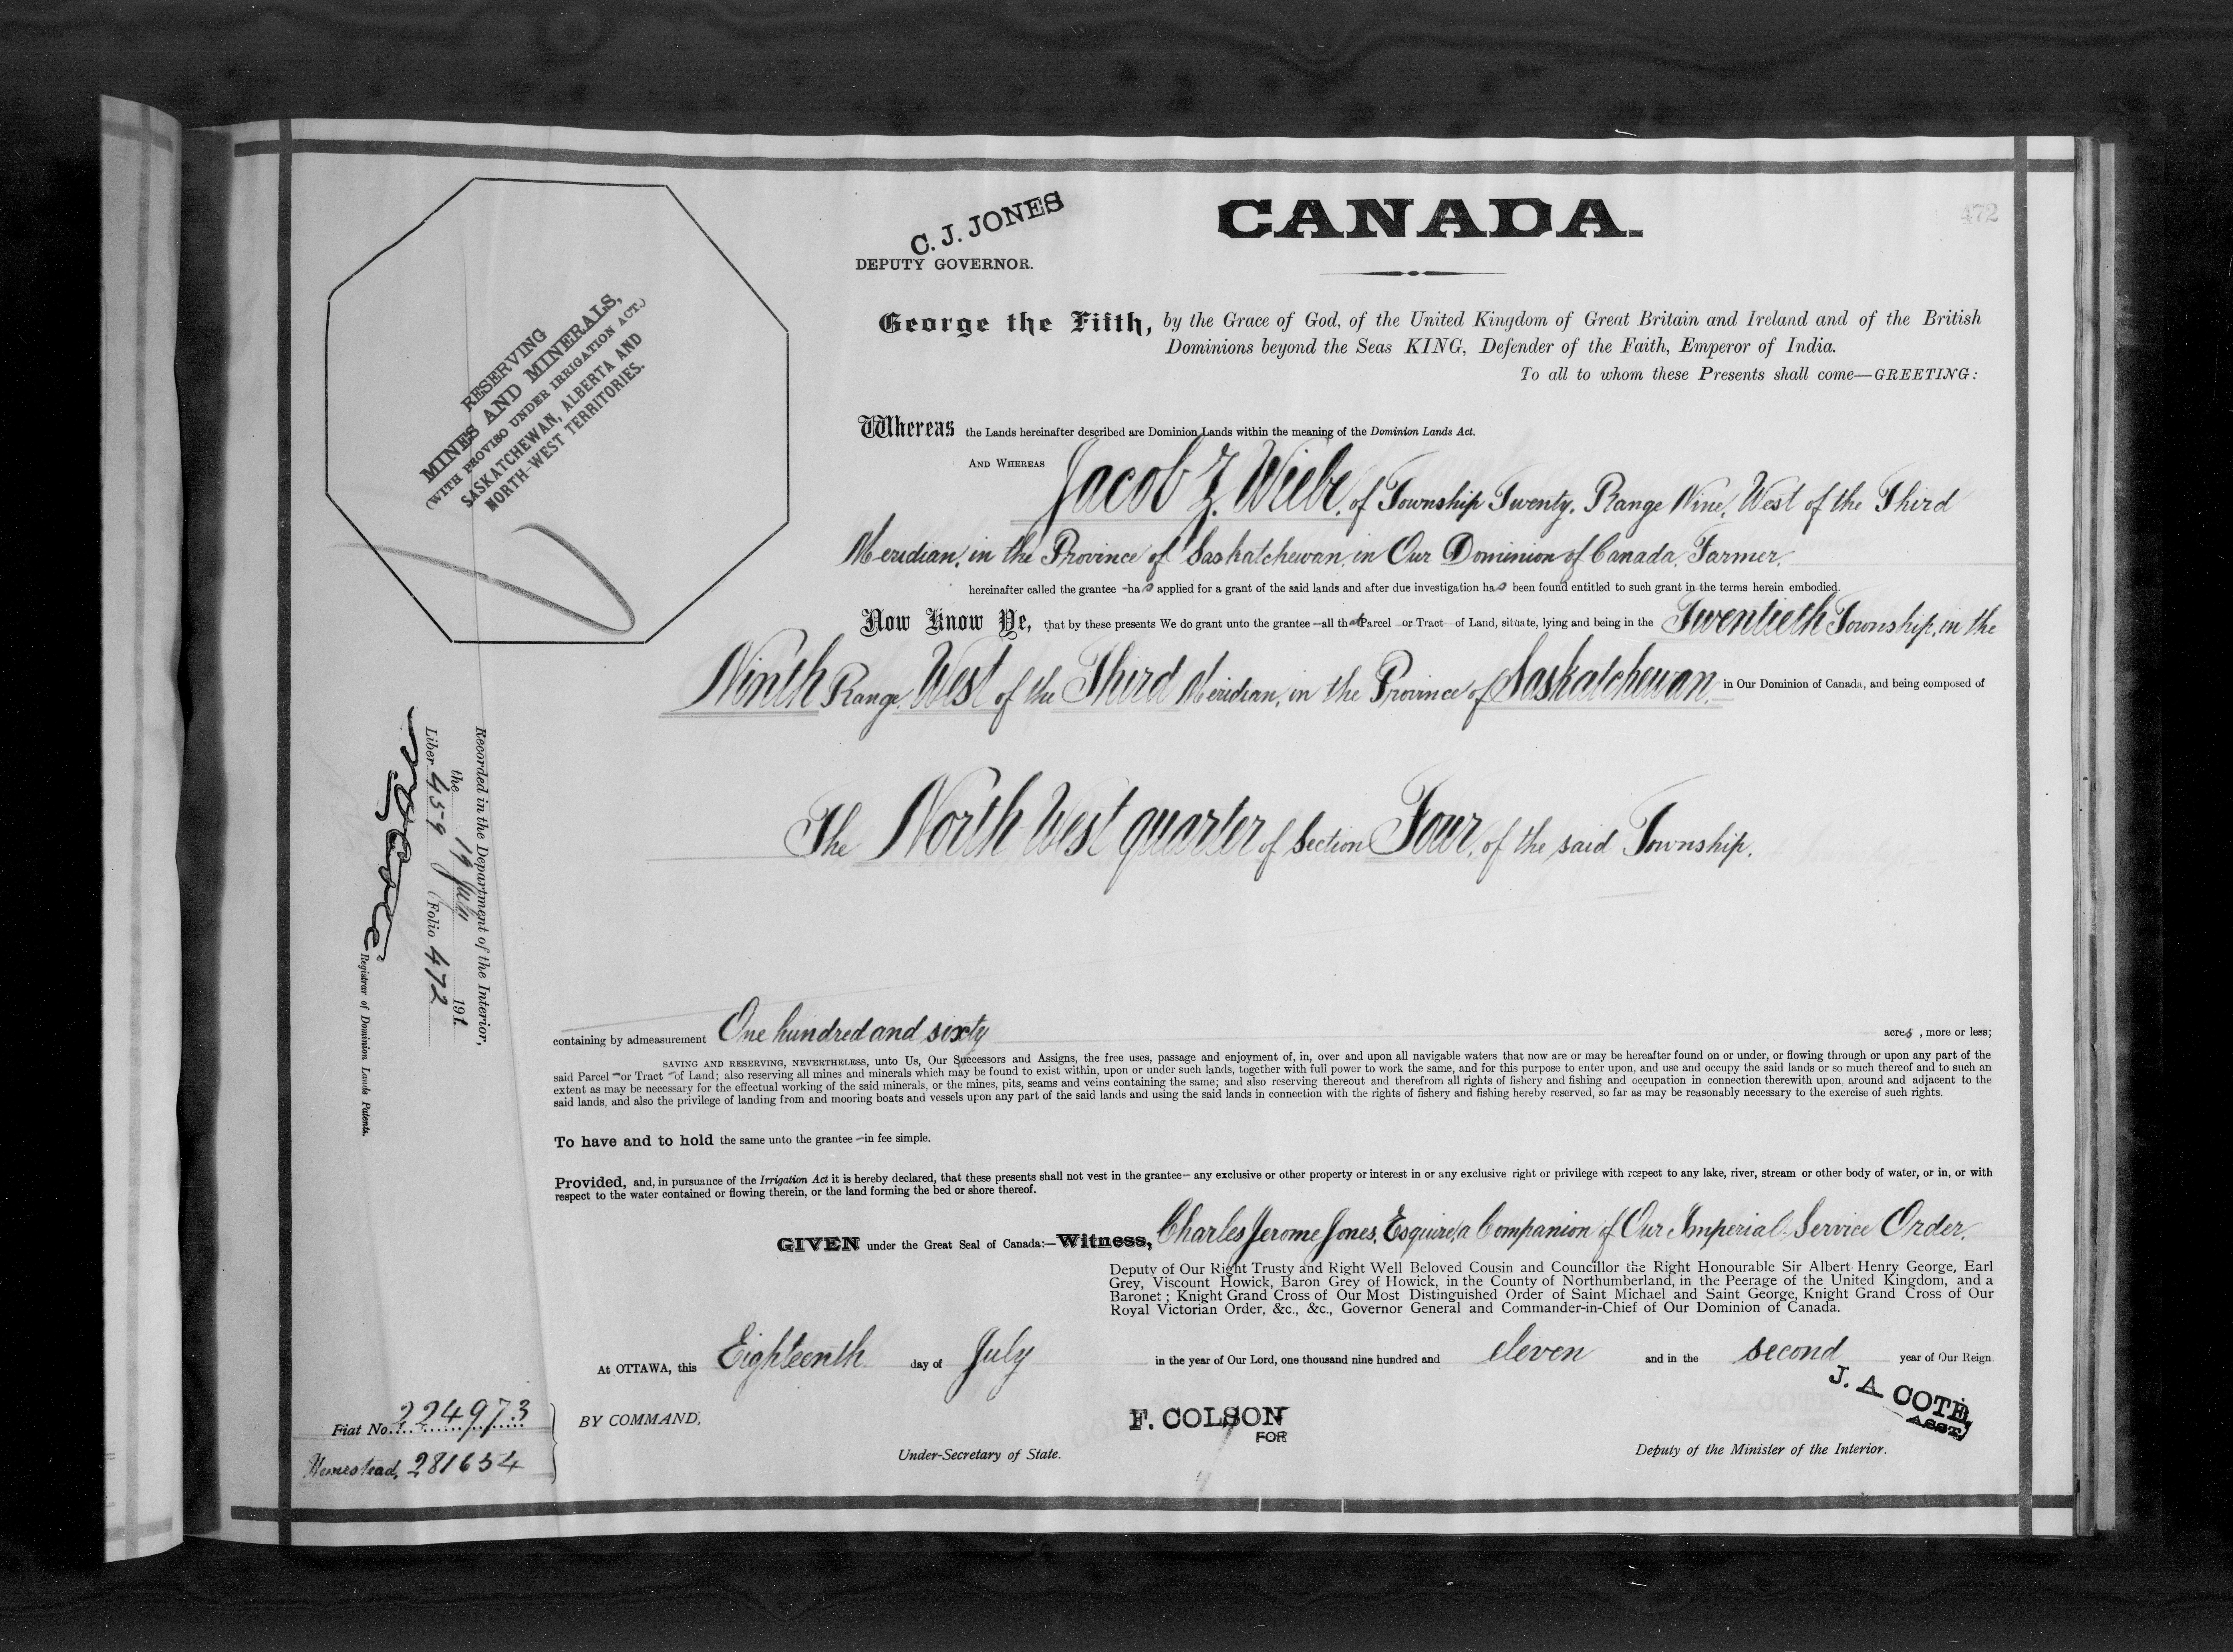 472
C. J. JONES
DEPUTY GOVERNOR.
CANADA.
RESERVING
MINES AND MINERALS,
(WITH PROVISO UNDER IRRIGATION ACT.)
SASKATCHEWAN, ALBERTA AND
NORTH-WEST TERRITORIES.
George the Fifth, by the Grace of God, of the United Kingdom of Great Britain and Ireland and of the British
Dominions beyond the Seas KING, Defender of the Faith, Emperor of India.
To all to whom these Presents shall come—GREETING:
Whereas the Lands hereinafter described are Dominion Lands within the meaning of the Dominion Lands Act.
AND WHEREAS Jacob Z. Wiebe, of Township Twenty, Range Nine, West of the Third
Meridian, in the Province of Saskatchewan, in Our Dominion of Canada, Farmer,
hereinafter called the grantee – has applied for a grant of the said lands and after due investigation has been found entitled to such grant in the terms herein embodied.
Now Know Ye, that by these presents We do grant unto the grantee – all that Parcel or Tract of Land, situate, lying and being in the Twentieth Township, in the
Ninth Range, West of the Third Meridian, in the Province of Saskatchewan, in Our Dominion of Canada, and being composed of
The North West quarter of Section Four, of the said Township.
Recorded in the Department of the Interior,
the 19 July 1911
Liber 459 Folio 472
Registrar of Dominion Lands Patents.
containing by admeasurement One hundred and sixty acres, more or less;
SAVING AND RESERVING, NEVERTHELESS, unto Us, Our Successors and Assigns, the free uses, passage and enjoyment of, in, over and upon all navigable waters that now are or may be hereafter found on or under, or flowing through or upon any part of the
said Parcel – or Tract – of Land; also reserving all mines and minerals which may be found to exist within, upon or under such lands, together with full power to work the same, and for this purpose to enter upon, and use and occupy the said lands or so much thereof and to such an
extent as may be necessary for the effectual working of the said minerals, or the mines, pits, seams and veins containing the same; and also reserving thereout and therefrom all rights of fishery and fishing and occupation in connection therewith upon, around and adjacent to the
said lands, and also the privilege of landing from and mooring boats and vessels upon any part of the said lands and using the said lands in connection with the rights of fishery and fishing hereby reserved, so far as may be reasonably necessary to the exercise of such rights.
To have and to hold the same unto the grantee – in fee simple.
Provided, and, in pursuance of the Irrigation Act it is hereby declared, that these presents shall not vest in the grantee – any exclusive or other property or interest in or any exclusive right or privilege with respect to any lake, river, stream or other body of water, or in, or with
respect to the water contained or flowing therein, or the land forming the bed or shore thereof.
GIVEN under the Great Seal of Canada:—Witness, Charles Jerome Jones, Esquire, a Companion of Our Imperial Service Order,
Deputy of Our Right Trusty and Right Well Beloved Cousin and Councillor the Right Honourable Sir Albert Henry George, Earl
Grey, Viscount Howick, Baron Grey of Howick, in the County of Northumberland, in the Peerage of the United Kingdom, and a
Baronet; Knight Grand Cross of Our Most Distinguished Order of Saint Michael and Saint George, Knight Grand Cross of Our
Royal Victorian Order, &c., &c., Governor General and Commander-in-Chief of Our Dominion of Canada.
At OTTAWA, this Eighteenth day of July in the year of Our Lord, one thousand nine hundred and eleven and in the second year of Our Reign.
Fiat No. 224973
Homestead, 281654
BY COMMAND,
F. COLSON
FOR
Under-Secretary of State.
J. A COTE,
ASST.
Deputy of the Minister of the Interior.